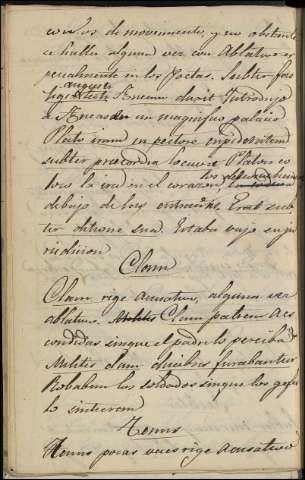 de movimiento, y no obstante
se halla alguna vez con Ablativo es
pecialmente en los Poetas. Subter
augusti
Aeneam duxit Introdujo
a Eneas en un magnifico palacio
Plato iram in pectore cupiditatem
subter praecordia locavit Platon co
loco la ira en el corazon,
debajo de las entrañas. Erat sub
ter ditione sua. Estaba vajo su ju
risdiccion
Clam
Clam rige Acusativo, alguna vez
ablativo. Clam patrem A es
condidas sinque el padre lo perciba
Milites clam ducibus furabantur
Robaban los soldados sinque los gefes
lo sintieran
Tenus
Tenus pocas veces rige acusativo